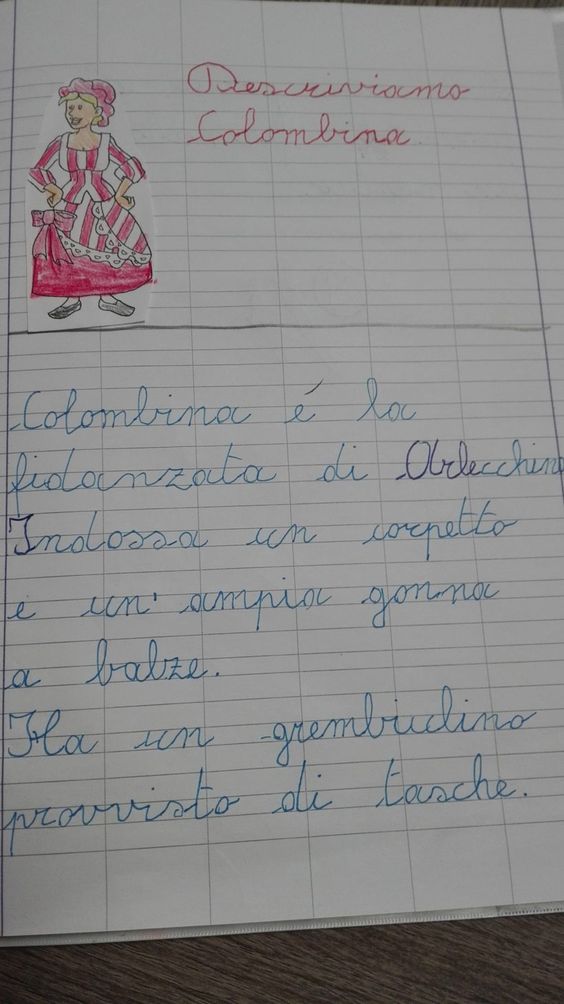 Descriviamo
Colombina.
Colombina é la
fidanzata di Arlecchino
Indossa un corpetto
e un' ampia gonna
a balze.
Ha un grembiulino
provvisto di tasche.